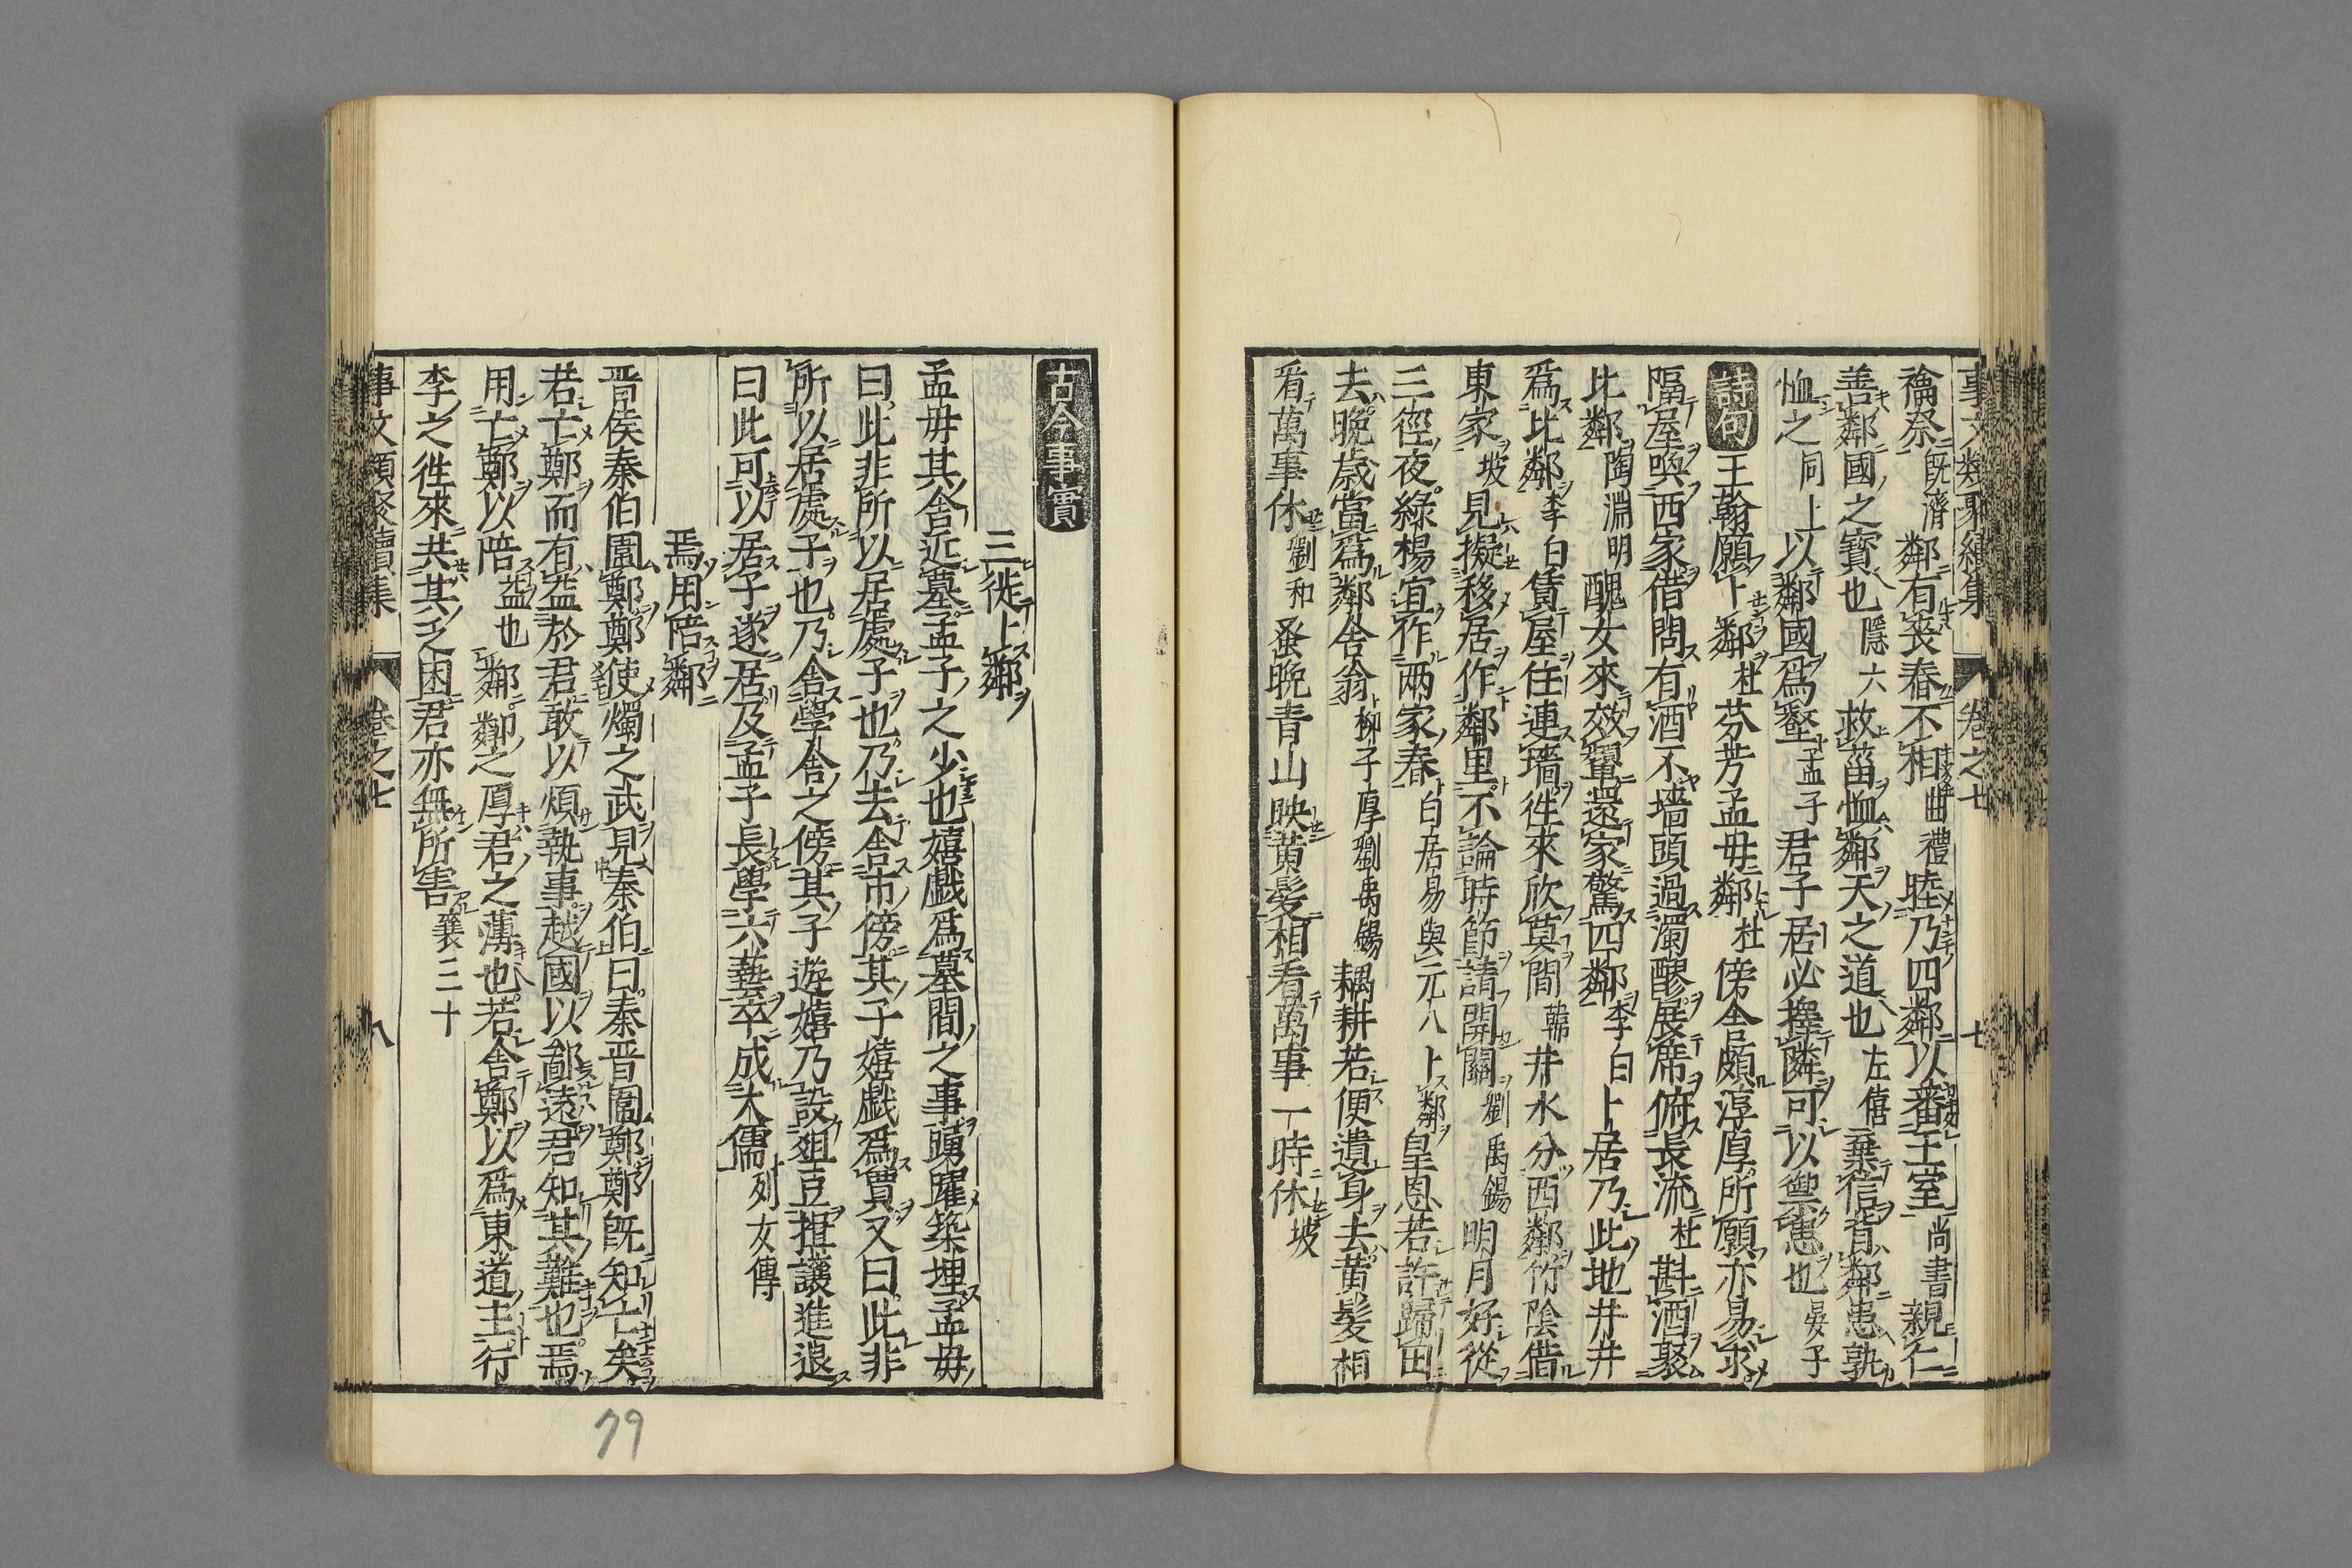 事文類聚續集 卷之七 七
禴祭既濟 鄰有喪春不相曲禮 睦乃四鄰以蕃王室尚書 親仁
善鄰國之寶也隱六 救菑恤鄰天之道也左僖 棄信背鄰患孰
恤之同上 以鄰國爲壑孟子 君子居必擇隣可以禦患也晏子
詩句 王翰願卜鄰杜 芬芳孟毋鄰杜 傍舍頗淳厚所願亦易求
隔屋喚西家借問有酒不墻頭過濁醪展席俯長流杜 斟酒聚
比鄰陶淵明 醜女來效顰還家驚四鄰李白 卜居乃此地井井
爲比鄰李白 賃屋住連墻徃來欣莫間韓 井水分西鄰竹陰借
東家坡 見擬移居作鄰里不論時節請開關劉禹錫 明月好從
三徑夜綠楊宜作兩家春白居易與元八卜鄰 皇恩若許歸田
去晚歲當爲鄰舍翁柳子厚劉禹錫 耦耕若便遺身去黃髮相
看萬事休劉和 蚤晚青山映黃髮相看萬事一時休坡
古今事實
三徙上鄰
孟毋其舍近墓孟子之少也嬉戲爲墓間之事踴躍築埋孟毋
曰此非所以居處子也乃去舍市傍其子嬉戲爲賈又曰此非
所以居處子也乃舍學舍之傍其子遊嬉乃設俎豆揖讓進退
曰此可以居子遂居及孟子長學六藝卒成大儒列女傳
焉用陪鄰
晋侯秦伯圍鄭鄭使燭之武見秦伯曰秦晋圍鄭鄭既知亡矣
若亡鄭而有益於君敢以煩執事越國以鄙遠君知其難也焉
用亡鄭以陪益也鄰鄰之厚君之薄也若舍鄭以爲東道主行
李之徃來共其乏困君亦無所害襄三十
事文類聚續集 卷之七 八
79